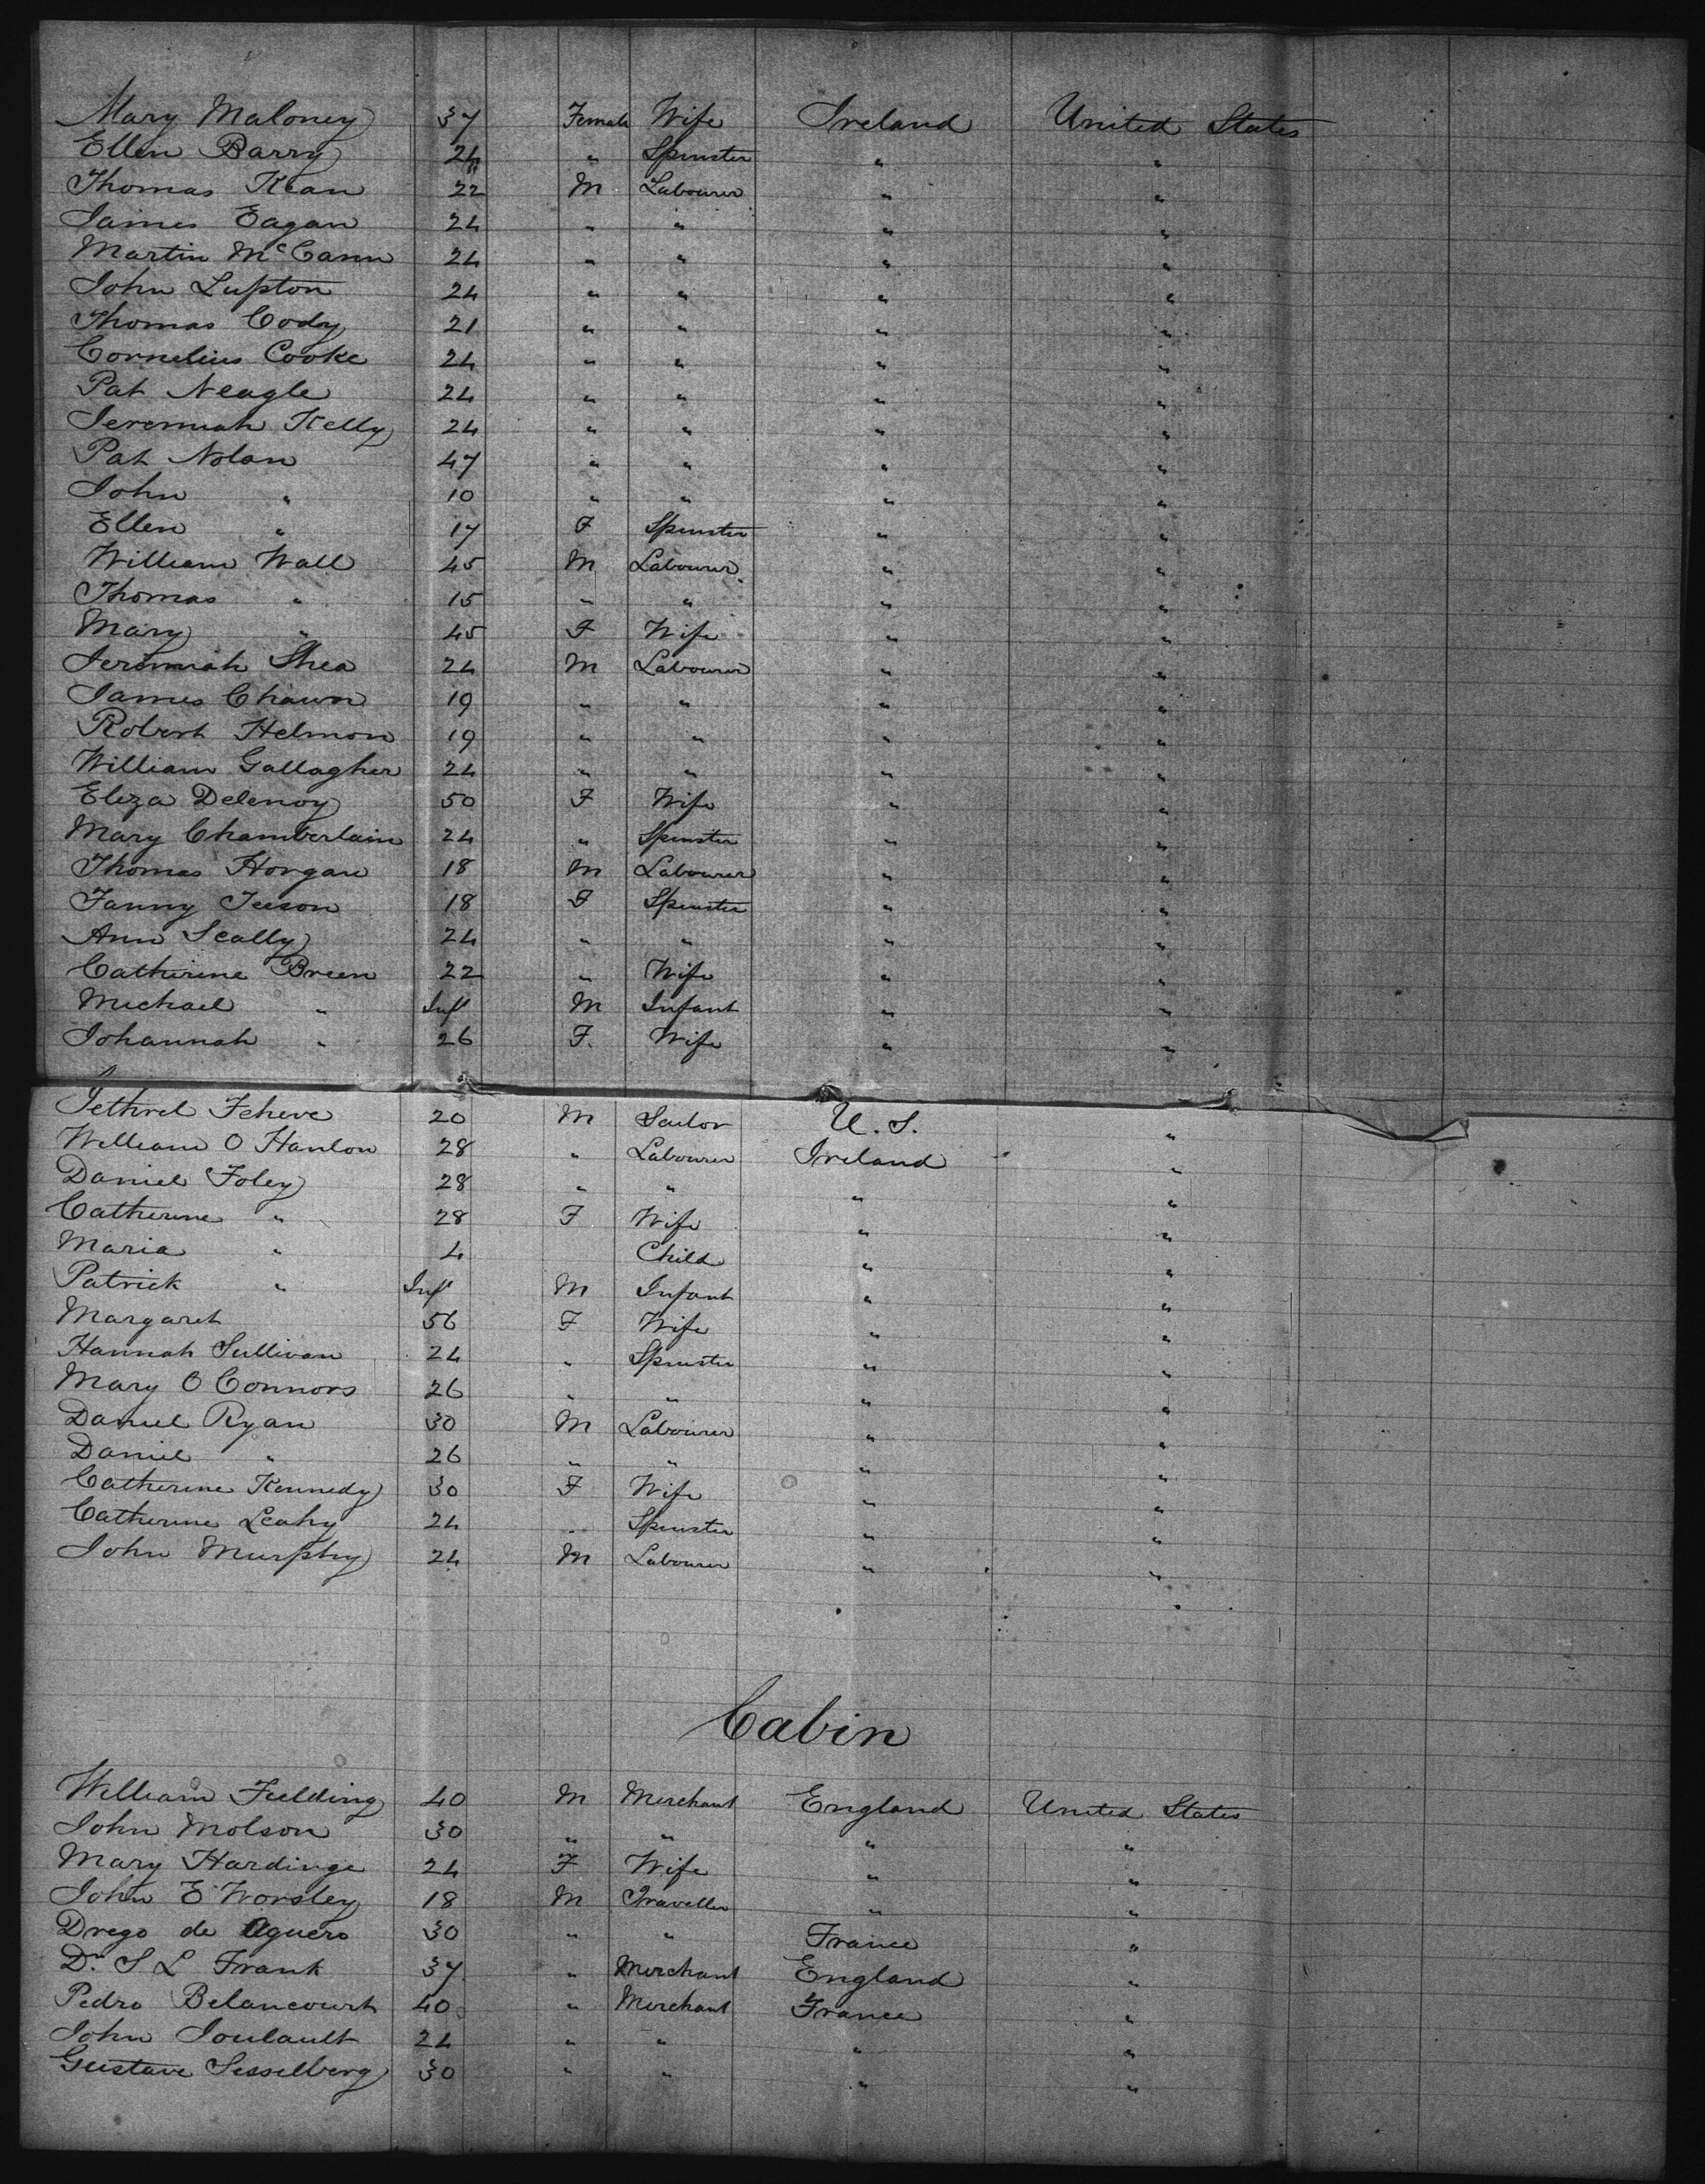 Mary Maloney 37 Female Wife Ireland United States
Ellen Barry 24 " Spinster " "
Thomas Kean 22 M Labourer " "
James Eagan 24 " " " "
Martin McCann 24 " " " "
John Lupton 24 " " " "
Thomas Cody 21 " " " "
Cornelius Cooke 24 " " " "
Pat Neagle 24 " " " "
Jeremiah Kelly 24 " " " "
Pat Nolan 47 " " " "
John " 10 " " " "
Ellen " 17 F Spinster " "
William Wall 45 M Labourer " "
Thomas " 15 " " " "
Mary " 45 F Wife " "
Jeremiah Shea 24 M Labourer " "
James Chawn 19 " " " "
Robert Helmon 19 " " " "
William Gallagher 24 " " " "
Eliza Delenoy 50 F Wife " "
Mary Chamberlain 24 " Spinster " "
Thomas Horgan 18 M Labourer " "
Fanny 18 F Spinster " "
Ann Scally 24 " " " "
Catherine Breen 22 " Wife " "
Michael " Inft M Infant " "
Johannah " 26 F. Wife " "
Jethrel 20 M Sailor U.S. "
William O Hanlon 28 " Labourer Ireland "
Daniel Foley 28 " " " "
Catherine " 28 F Wife " "
Maria " 4 Child " "
Patrick " Inft M Infant " "
Margaret 56 F Wife " "
Hannah Sullivan 24 " Spinster " "
Mary O Connors 26 " " " "
Daniel Ryan 30 M Labourer " "
Daniel " 26 " " " "
Catherine Kennedy 30 F Wife " "
Catherine Leahy 24 " Spinster " "
John Murphy 24 M Labourer " "
Cabin
William Fielding 40 M Merchant England United States
John Molson 30 " " " "
Mary Hardinge 24 F Wife " "
John E Worsley 18 M Traveller " "
Drego de Aguero 30 " " France "
Dr. S L Frank 37 " Merchant England "
Pedro Belancourt 40 " Merchant France "
John Joulault 24 " " " "
Gustave Sesselberg 30 " " " "